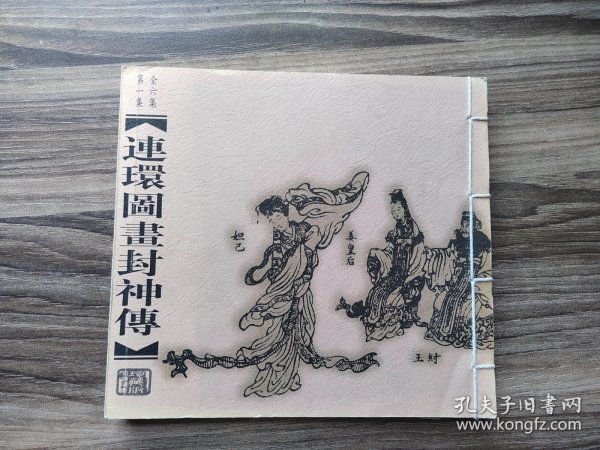 全六集
第一集
連環圖畫封神傳
妲己
姜皇后
紂王
孔夫子旧书网
www.kongfz.com